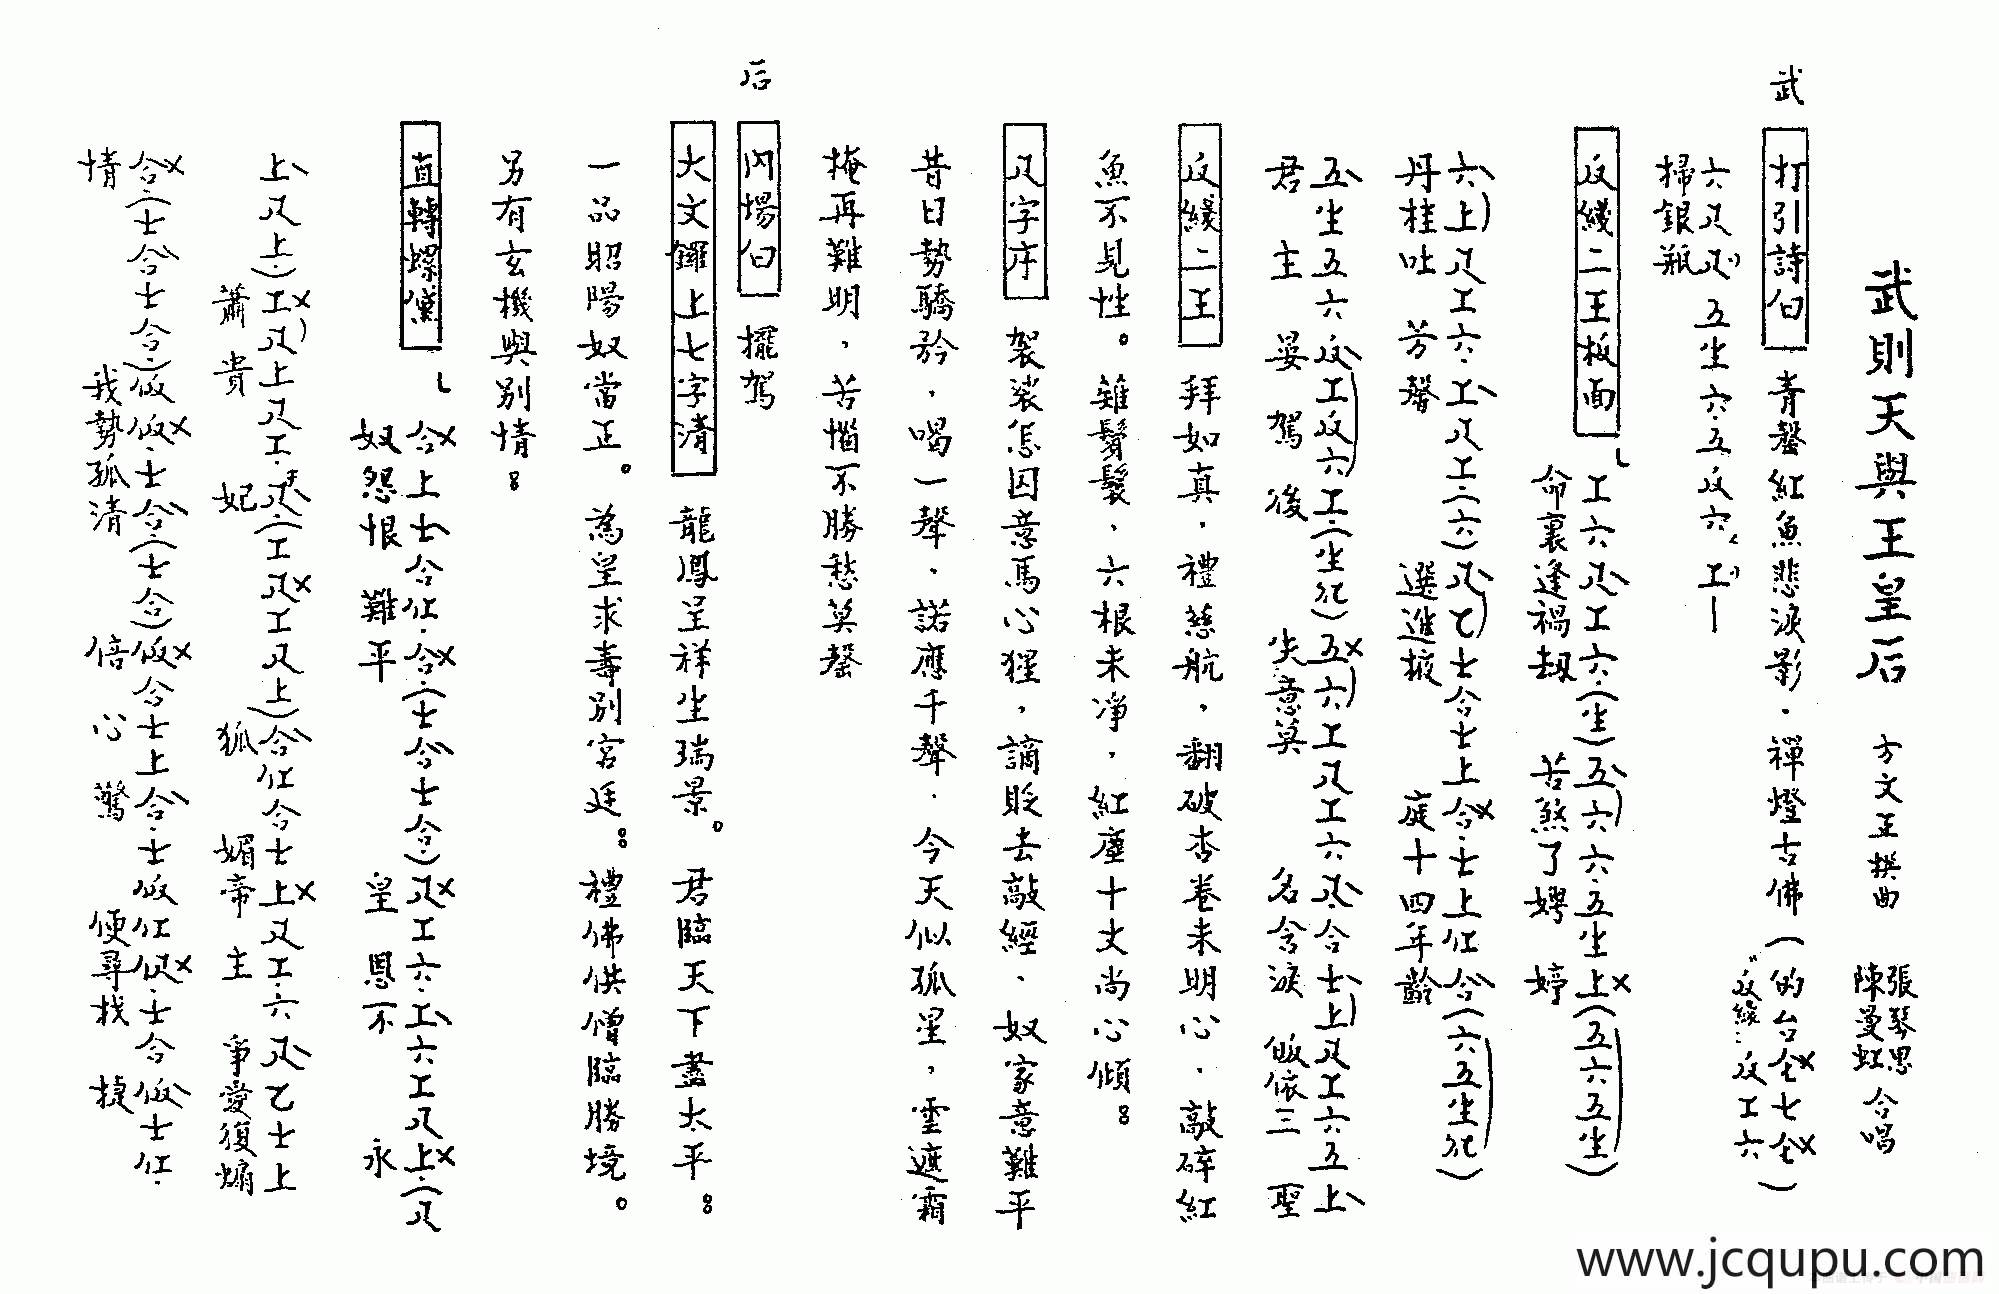 武則天與王皇后 方文正撰曲 張琴思 陳曼虹 合唱
武 打引詩白 青磬紅魚悲淚影．禪燈古佛（的台仺七仺）
掃銀瓶
六尺尺 五生六．五反六． 工—
"反線" 反工六
反綫二王板面 工六尺工六．（生）五六六．五生上（五六五生）
命裏逢禍劫 苦煞了娉婷
六上尺工六．工尺工．（六）尺乙士合士上合．士上仜合（六五生𠆾）
丹桂吐芳馨 選進掖庭十四年齡
五生五六反工反六工．（生𠆾）五六工尺工六尺合士上尺工六五上
君主晏駕後 失意莫名含淚 皈依三聖
反綫二王 拜如真．禮慈航，翻破杏卷未明心．敲碎紅
魚不見性。雖鬀髮、六根未凈，紅塵十丈尚心傾：
尺字序 袈裟怎囚意馬心猩，謫貶去敲經、奴家意難平
昔日勢驕矜，喝一聲．諾應千聲．今天似孤星，雲遮霜
掩再難明，苦惱不勝愁莫罄
后 內場白 擺駕
大文鑼上七字清 龍鳳呈祥坐瑞景。君臨天下盡太平：
一品昭陽奴當正。為皇求壽別宮廷：禮佛供僧臨勝境。
另有玄機與別情：
直轉螺黛 合上士合仜．合（士合士合．）尺工六．工六工尺上（尺
奴怨恨難平 皇恩不永
上尺上）．工尺上尺工．尺（工尺工尺上）合仜合士上尺工．六尺乙士上
蕭貴妃 狐媚帝主 爭愛復煽
合（士合士合．）伬伬．士合（士合）伬合士上合．士伬仜伬．士合伬士仜．
情 我勢孤清 倍心驚 便尋找捷
www.jcqupu.com